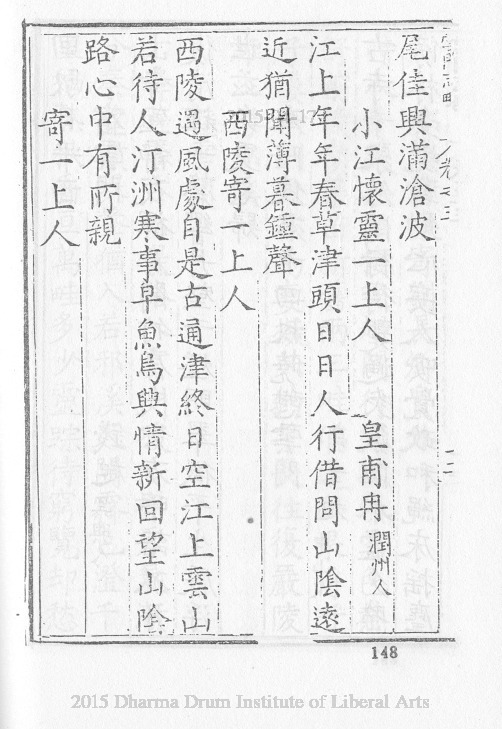 雲門志略 卷之三
尾佳興滿滄波
小江懷靈一上人 皇甫冉 潤州人
江上年年春草津頭日日人行借問山陰遠
近猶聞薄暮鐘聲
西陵寄一上人
西陵遇風處自是古通津終日空江上雲山
若待人汀洲寒事早魚鳥興情新回望山陰
路心中有所親
寄一上人
148
2015 Dharma Drum Institute of Liberal Arts